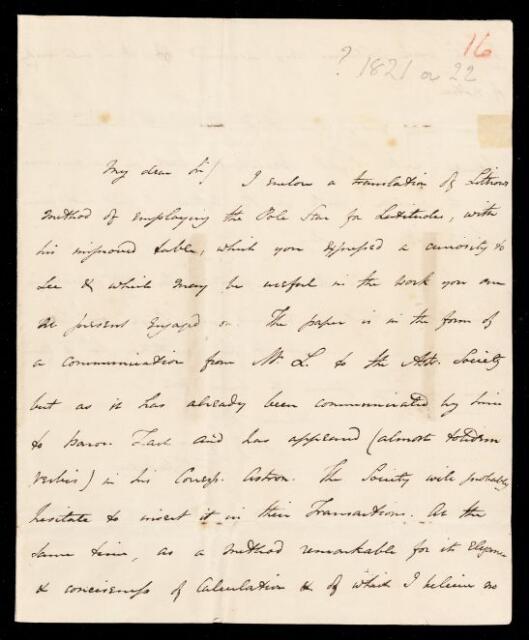 16
? 1821 or 22
My dear Sir / I enclose a translation of Littrow's
method of employing the Pole Star for Latitudes, with
his improved table, which you expressed a curiosity to
see & which may be useful in the work you are
at present engaged on. The paper is in the form of
a communication from Mr L. to the Astr. Society
but as it has already been communicated by him
to Baron Zach and has appeared (almost totidem
verbis) in his Corresp. Astron. The Society will probably
hesitate to insert it in their Transactions. At the
same time, as a method remarkable for its elegance
& conciseness of Calculation & of which I believe no